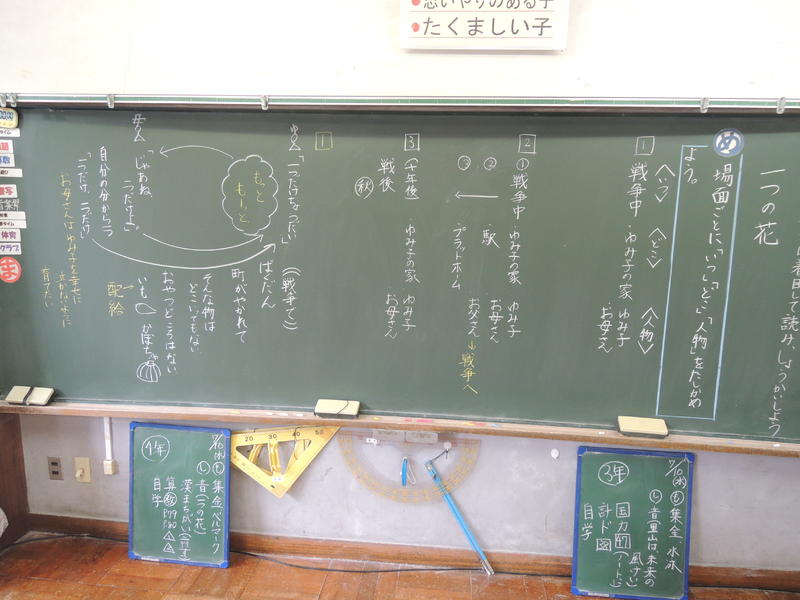 思いやりのある子
たくましい子
着目して読み、しょうかいしよう
一つの花
め
場面ごとに「いつ」「どこ」「人物」をたしかめ
よう。
〈いつ〉 〈どこ〉 〈人物〉
1 戦争中 ・ゆみ子の家 ゆみ子
・お母さん
2 ①戦争中・ゆみ子の家 ゆみ子
② 駅 お母さん
③ プラットホーム お父さん 戦争へ
3 (十年後) ゆみ子の家 ゆみ子
戦後 ・お母さん
秋
1
ゆみ子「一つだけちょうだい」
もっと
もーっと
母 「じゃあね
一つだけよ。」
自分の分から一つ
「一つだけ、一つだけ」
お母さんはゆみ子を幸せに
育てたい
ばくだん (戦争で)
町がやかれて
そんな物は
どこにでもない
おやつどころではない
いも かぼちゃ
配給
体育
クラブ
ま
4年
集金、ベルマーク
音(一つの花)
漢まちがい
算
自学
3年
7/10(水)
も 集金、水泳
し 音里山は未来の
風けい
国力
計ド
自学
20 30 40 50